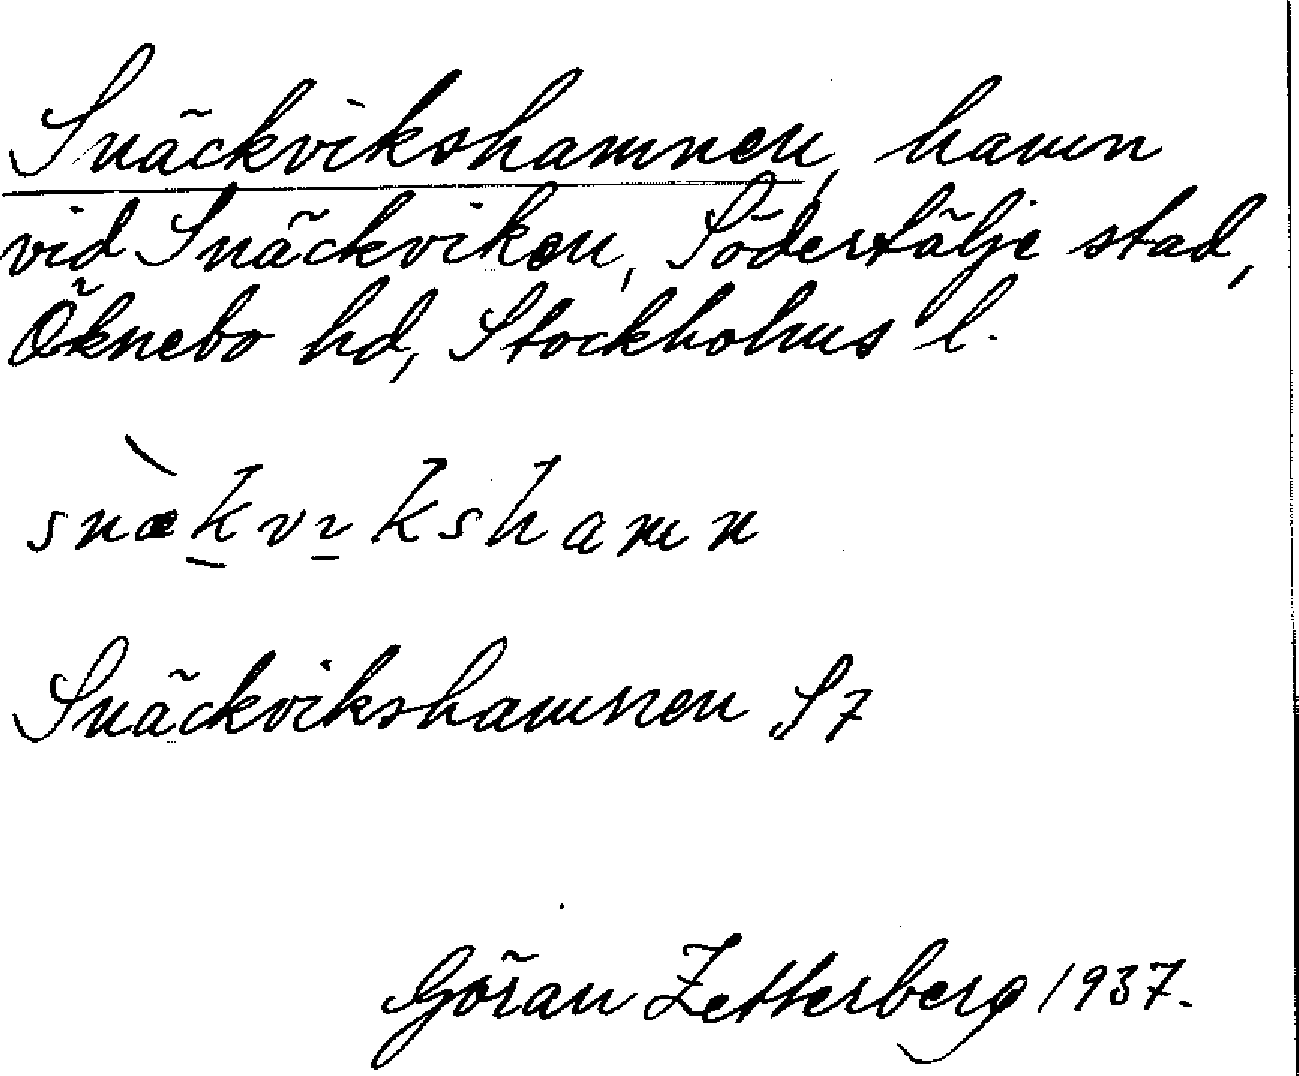 Snäckvikshamnen, hamn
vid Snäckviken, Södertälje stad,
Öknebo hd, Stockholms l.
snæ̀k̠vɪ̠kshamn
Snäckvikshamnen S7
Göran Zetterberg 1937.